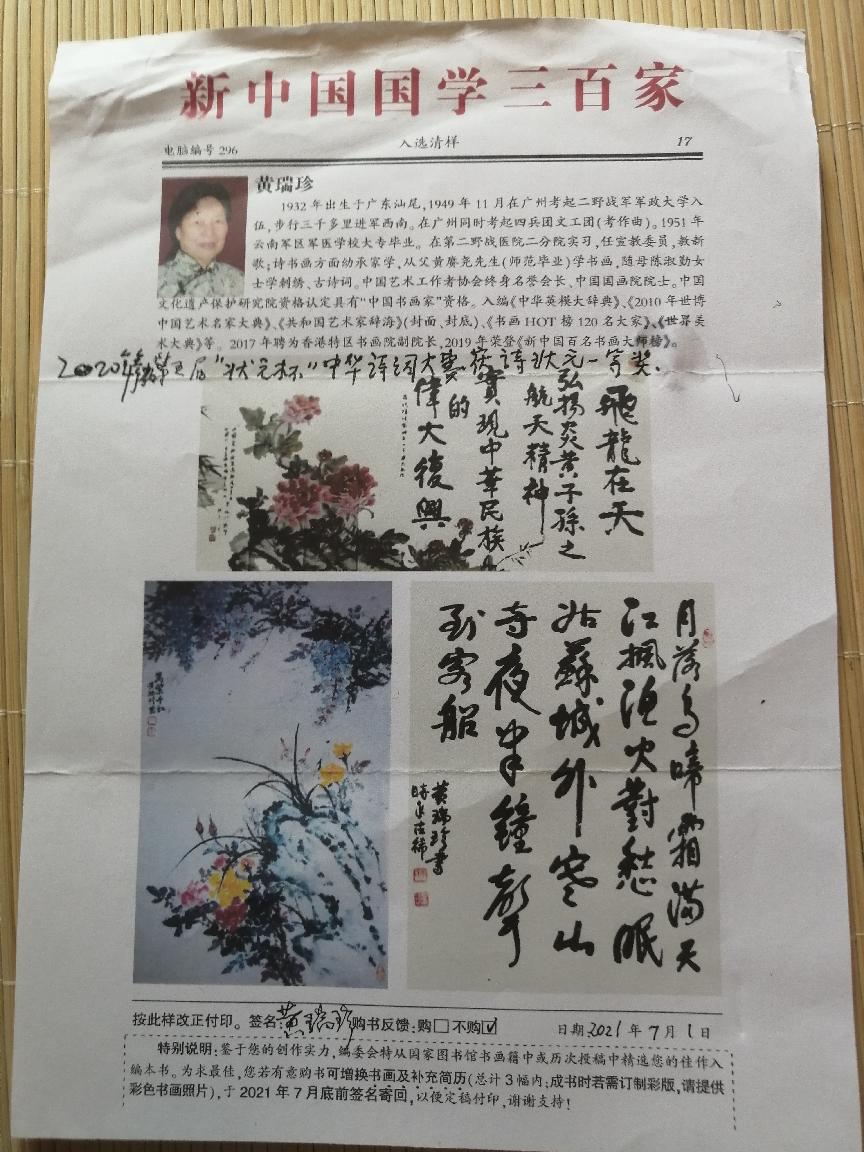 新中国国学三百家
电脑编号 296 入选清样 17
黄瑞珍
1932 年出生于广东汕尾，1949 年 11 月在广州考起二野战军军政大学入
伍，步行三千多里进军西南。在广州同时考起四兵团文工团（考作曲）。1951 年
云南军区军医学校大专毕业。在第二野战医院二分院实习，任宣教委员，教新
歌；诗书画方面幼承家学，从父黄赓尧先生（师范毕业）学书画，随母陈淑勤女
士学刺绣、古诗词。中国艺术工作者协会终身名誉会长、中国国画院院士。中国
文化遗产保护研究院资格认定具有“中国书画家”资格。入编《中华英模大辞典》、《2010 年世博
中国艺术名家大典》、《共和国艺术家辞海》（封面、封底）、《书画 HOT 榜 120 名大家》、《世界美
术大典》等。2017 年聘为香港特区书画院副院长，2019 年荣登《新中国百名书画大师榜》。
2020年 届“状元杯”中华诗词大赛获诗状元一等奖.
飛龍在天
弘揚炎黄子孫之
航天精神
實現中華民族
的
偉大復興
月落烏啼霜滿天
江楓漁火對愁眠
姑蘇城外寒山
寺夜半鐘聲
到客船
黄瑞珍書
按此样改正付印。签名 黄瑞珍 购书反馈：购□ 不购☑ 日期 2021 年 7 月 1 日
特别说明：鉴于您的创作实力，编委会特从国家图书馆书画籍中或历次投稿中精选您的佳作入
编本书。为求最佳，您若有意购书可增换书画及补充简历（总计 3 幅内；成书时若需订制彩版，请提供
彩色书画照片），于 2021 年 7 月底前签名寄回，以便定稿付印，谢谢支持！